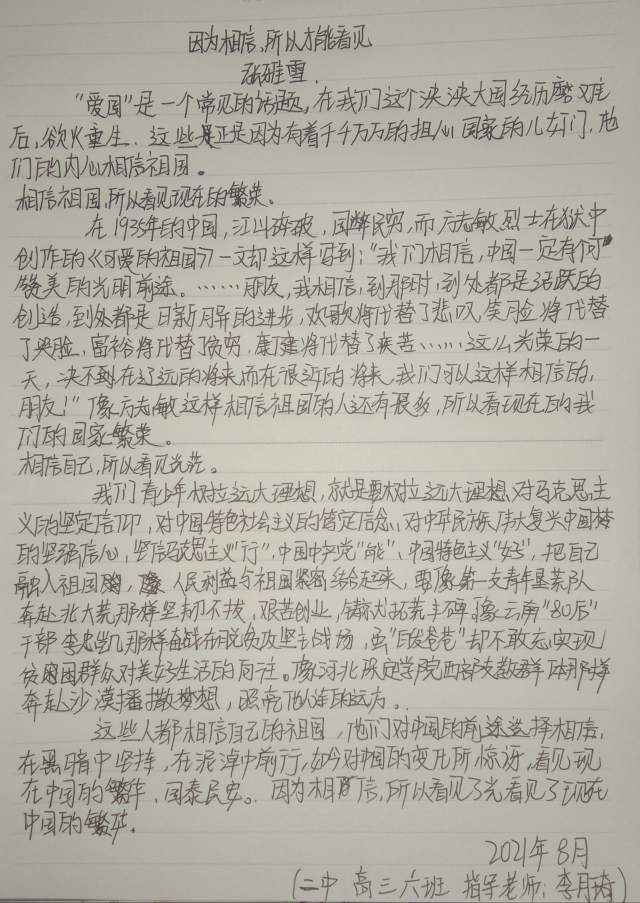 因为相信,所以才能看见
张雅雪.
“爱国”是一个常见的话题,在我们这个泱泱大国经历磨难
后,欲火重生.这些是正是因为有着千千万万的担心国家的儿女们,他
们的内心相信祖国。
相信祖国,所以看见现在的繁荣。
在1935年的中国,江山破,国弊民穷,而方志敏烈士在狱中
创作的《可爱的祖国》一文却这样写到:“我们相信,中国一定有个可
赞美的光明前途。……朋友,我相信,到那时,到处都是活跃的
创造,到处都是日新月异的进步,欢歌将代替了悲叹,笑脸将代替
了哭脸,富裕将代替了贫穷,康健将代替了疾苦……这么光荣的一
天,决不到在辽远的将来而在很近的将来,我们可以这样相信的,
朋友!”像方志敏这样相信祖国的人还有很多,所以看现在的我
们的国家繁荣。
相信自己,所以看见光芒。
我们青少年树立远大理想,就是要树立远大理想、对马克思主
义的坚定信仰,对中国特色社会主义的信念、对中华民族伟大复兴中国梦
的坚强信心,坚信马克思主义“行”,中国共产党“能”、中国特色主义“好”,把自己
融入祖国,人民利益与祖国紧密结合起来,要像第一支青年垦荒队
奔赴北大荒那样坚韧不拔,艰苦创业,铸就拓荒丰碑,像云南“80后”
干部李忠凯那样奋战在脱贫攻坚主战场,虽“白发爸爸”却不敢忘实现
贫困群众对美好生活的向往。像河北保定学院西部支教群体那样
奔赴沙漠播撒梦想,照亮他人的远方。.
这些人都相信自己的祖国,他们对中国的前途选择相信,
在黑暗中坚持,在泥淖中前行,如今对中国的变化所惊讶,看见现
在中国的繁华,国泰民安。因为相信,所以看见了光看见了现在
中国的繁华.
2021年8月
(二中 高三六班 指导老师:李月琦)